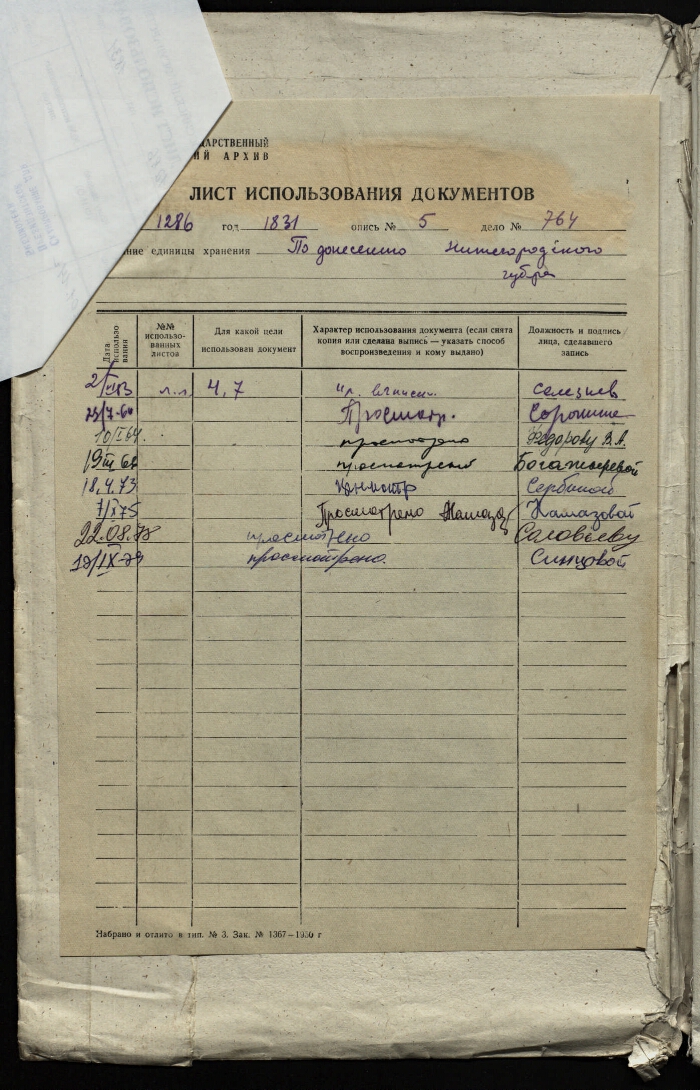 ДАРСТВЕННЫЙ
ИЙ АРХИВ
ЛИСТ ИСПОЛЬЗОВАНИЯ ДОКУМЕНТОВ
1286 год 1831 опись № 5 дело № 764
ние единицы хранения По донесению Нижегородского
губер
Дата использования
№№ использованных листов
Для какой цели использован документ
Характер использования документа (если снята копия или сделана выпись — указать способ воспроизведения и кому выдано)
Должность и подпись лица, сделавшего запись
л.л. 4, 7 Селезнев
23/7-60 Просмотр.
10/I 64. просмотрено Федорову В.А.
19 III 68 просмотрено
18.4.73 Сербиной
7/X 75 Просмотрено Камазовой
22.08.78 просмотрено Соловьеву
19/IX-79 просмотрено. Синцовой
Набрано и отлито в тип. № 3. Зак. № 1367—1950 г